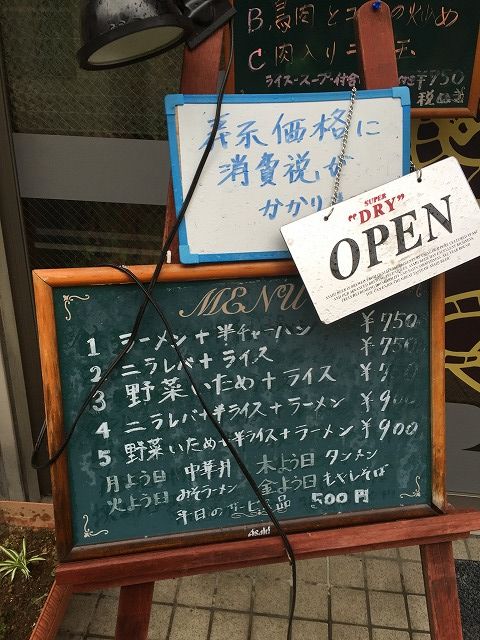 B. 肉 と の 炒め
C 肉入りニラ玉
ライス・スープ付 ¥950
税
表示価格に
消費税が
かかり
SUPER
"DRY"
OPEN
MENU
1 ラーメン+半チャーハン ¥750
2 ニラレバ+ライス ¥750
3 野菜いため+ライス ¥
4 ニラレバ+半ライス+ラーメン ¥9
5 野菜いため+半ライス+ラーメン ¥900
月よう日 中華丼 木よう日 タンメン
火よう日 みそラーメン 金よう日 もやしそば
平日の サービス品 500円
Asahi